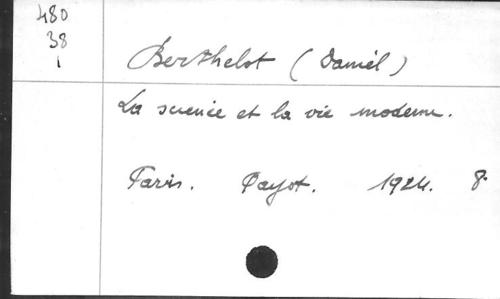 480
38
1
Berthelot (Daniel)
La science et la vie moderne.
Paris. Payot. 1924. 8°